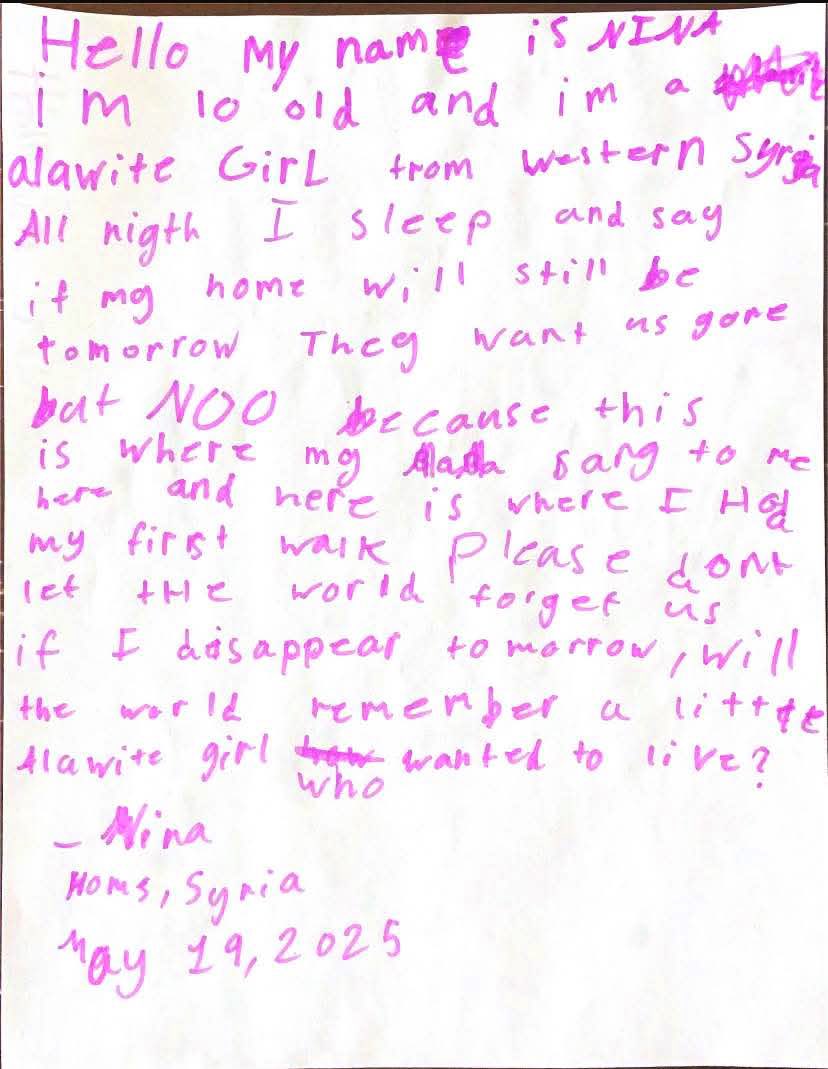 Hello My name is NINA
im 10 old and im a
alawite GirL from western Syria
All nigth I sleep and say
if my home will still be
tomorrow They want us gone
but NOO because this
is where my sang to me
here and here is where I Had
my first walk Please dont
let tHe world forget us
if I disappear tomorrow, will
the world remember a little
Alawite girl who wanted to live?
- Nina
Homs, Syria
May 19, 2025